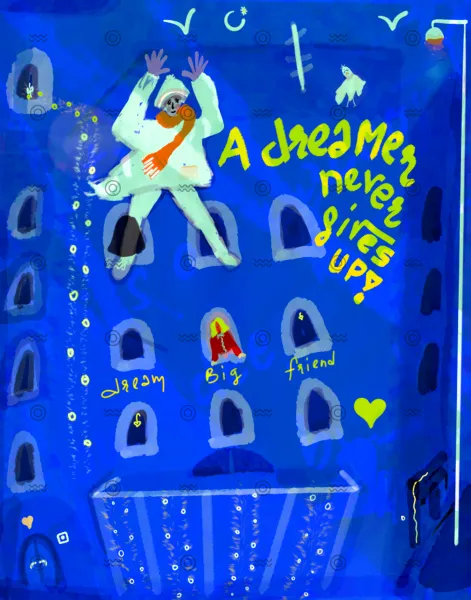 A dreamer
never
gives
up!
dream Big friend